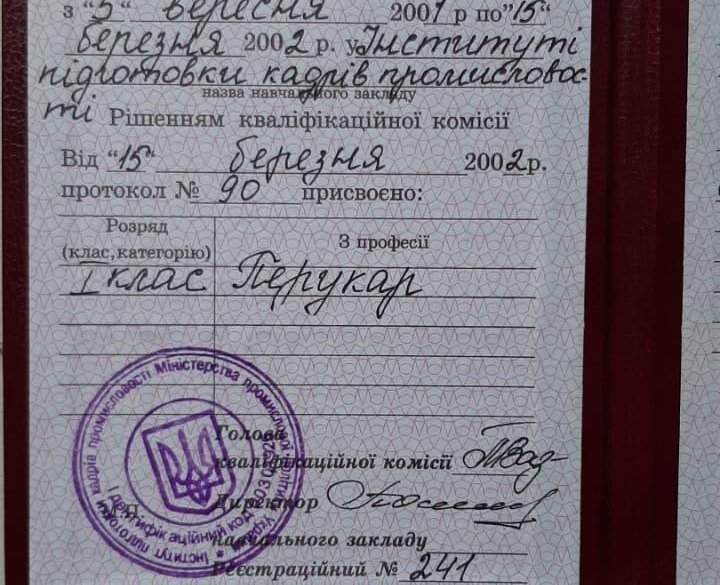 з "5" вересня 2001 р по "15"
березня 2002 р. у Інституті
підготовки кадрів промисловос
назва навчального закладу
ті Рішенням кваліфікаційної комісії
Від "15" березня 2002 р.
протокол № 90 присвоєно:
Розряд
(клас, категорію)
З професії
I клас Перукар
Міністерства промислової політики України
Інститут підготовки кадрів промисловості
Ідентифікаційний код
Голова
кваліфікаційної комісії
М.П.
Директор
навчального закладу
Реєстраційний № 241